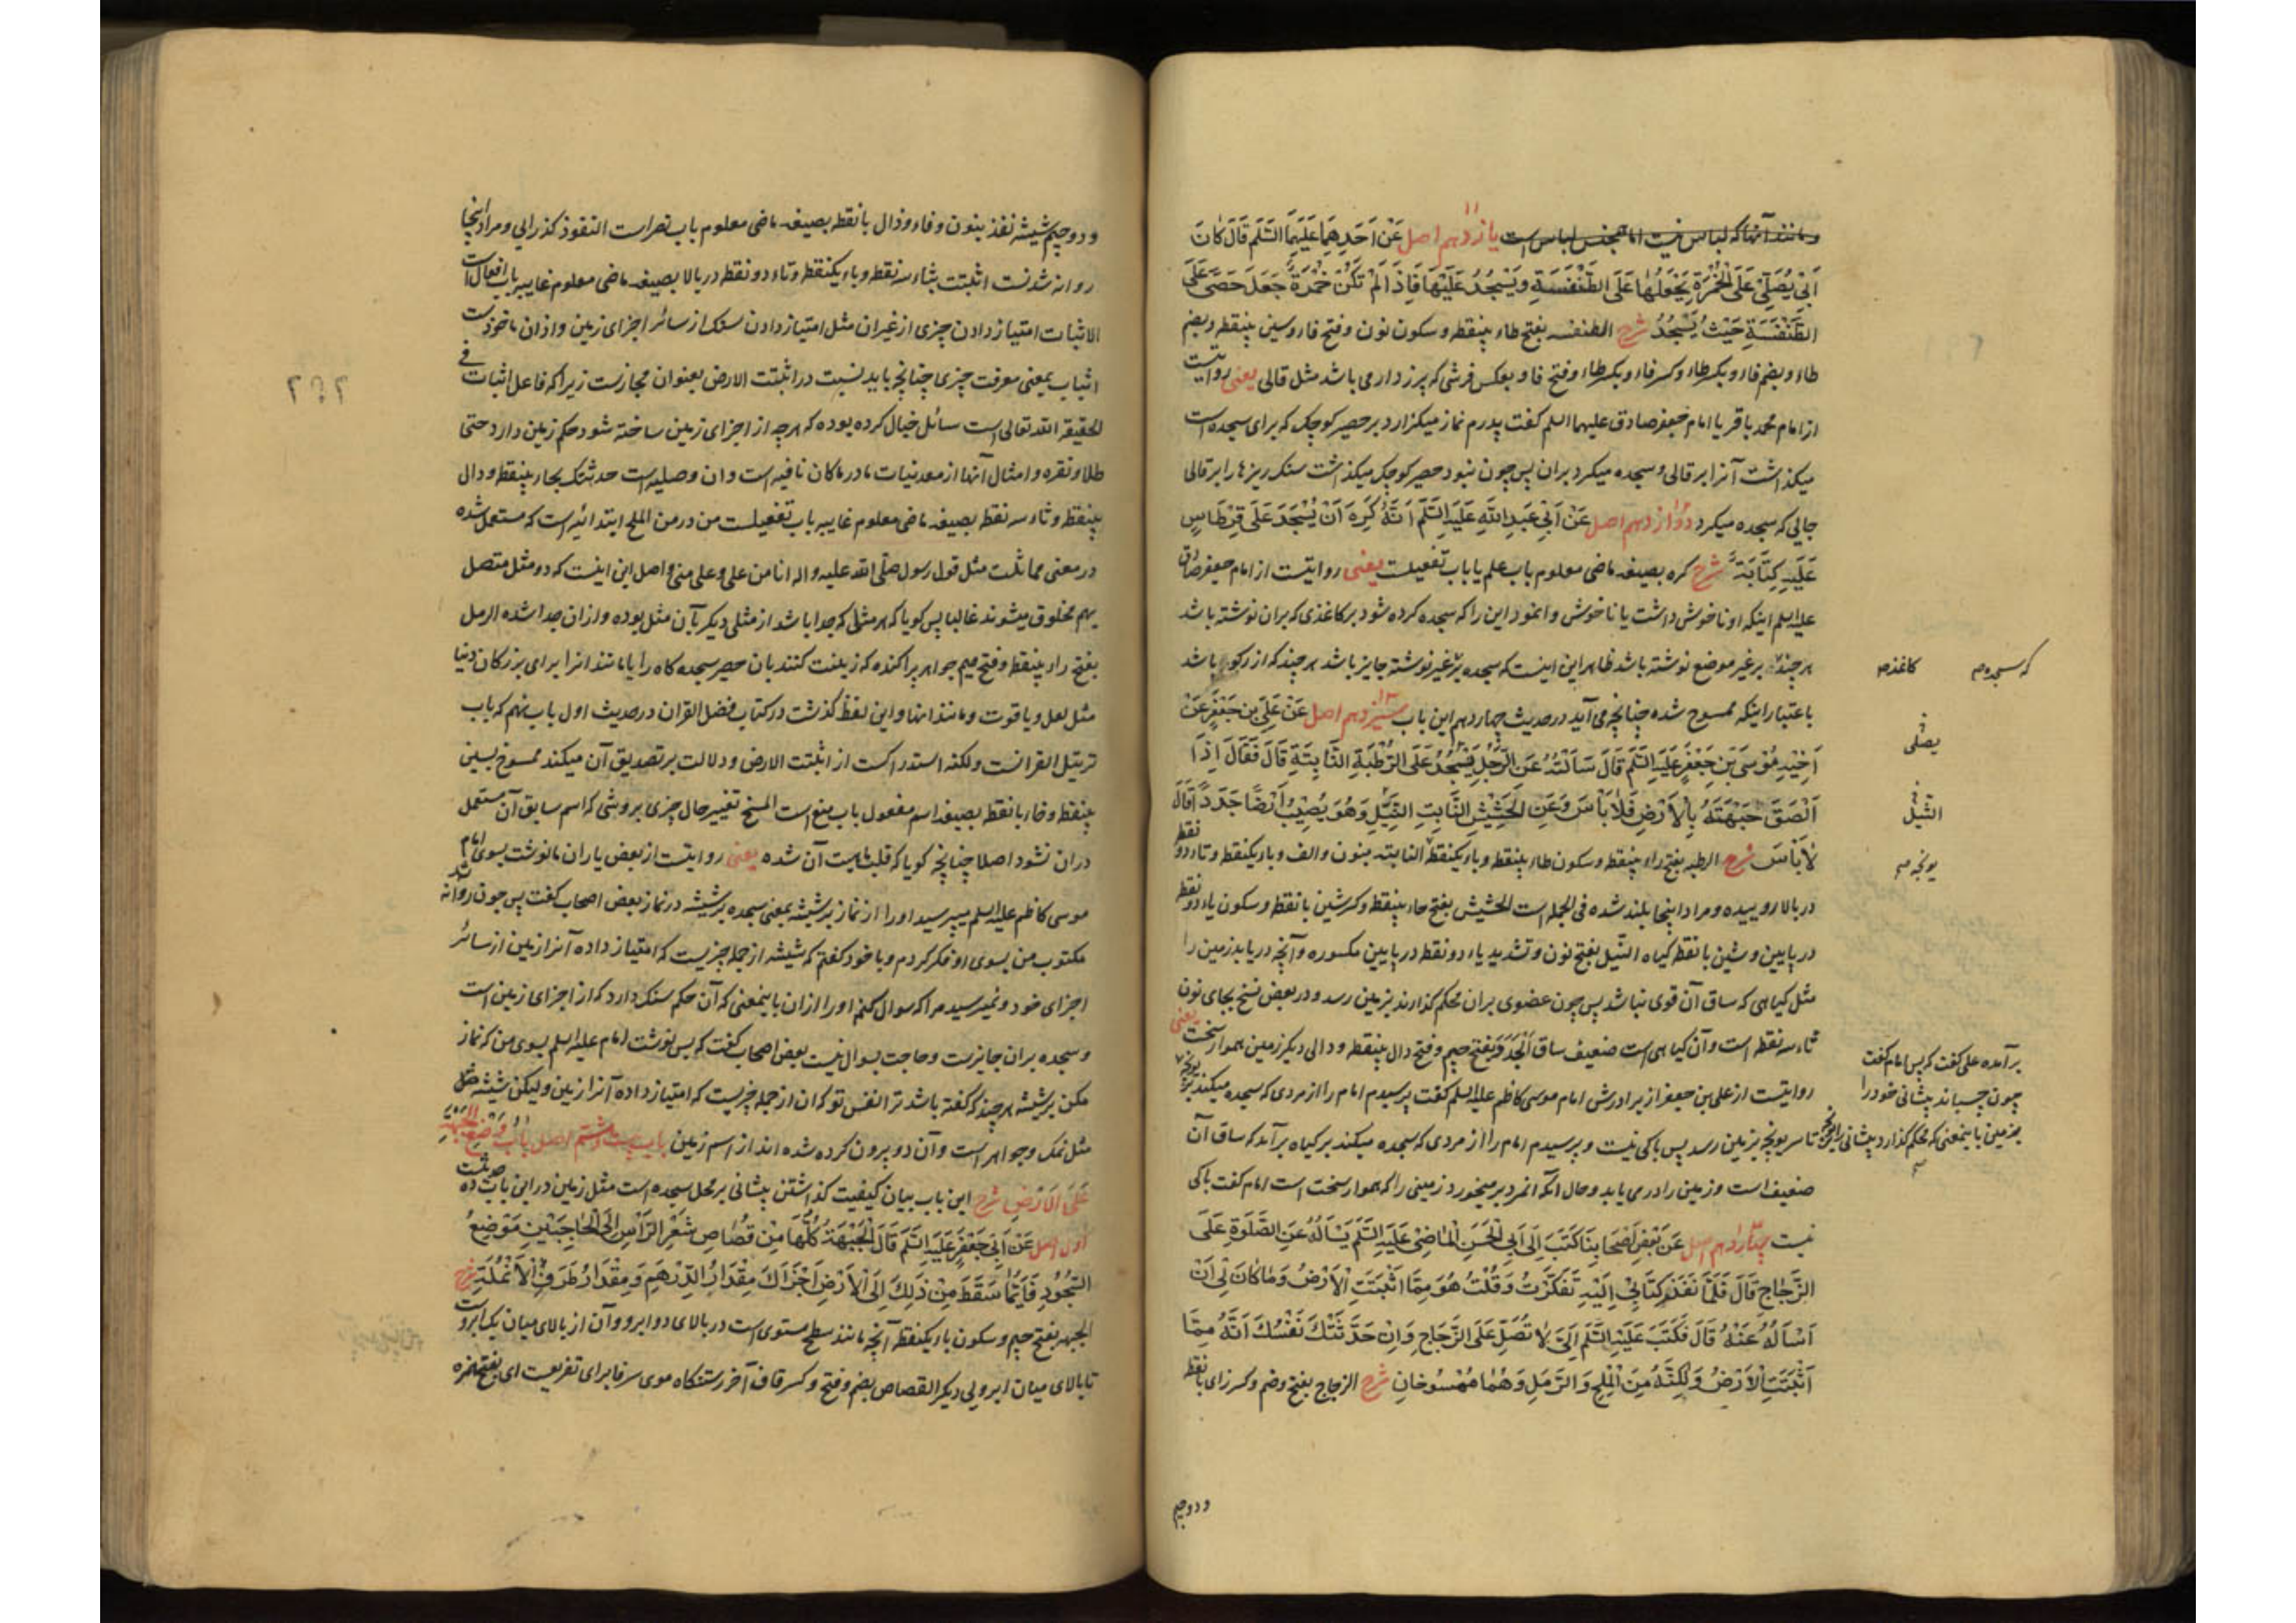 و مانند آنها که لباس نیست اما همجنس لباس است یازدهم اصل عَنْ اَحَدِهِمَا عَلَیْهِمَا السَّلَم قَالَ کَانَ
اَبِی یُصَلِّی عَلَی الْخُمْرَةِ یَجْعَلُهَا عَلَی الطِّنْفِسَةِ وَیَسْجُدُ عَلَیْهَا فَاِذَا لَمْ تَکُنْ خُمْرَةٌ جَعَلَ حَصًی عَلَی
الطِّنْفِسَةِ حَیْثُ یَسْجُدُ شرح الطنفسه بفتح طاء بینقطه و سکون نون و فتح فاء و سین بینقطه و بضم
طاء و بضم فاء و بکسر طاء و کسر فاء و بکسر طاء و فتح فا و بعکس فرشی که پرزدار می باشد مثل قالی یعنی روایتست
از امام محمد باقر یا امام جعفر صادق علیهما السلم گفت پدرم نماز میگزارد بر حصیر کوچک که برای سجده است
میگذاشت آنرا بر قالی و سجده میکرد بران پس چون نبود حصیر کوچک میگذاشت سنک ریزها را بر قالی
جایی که سجده میکرد دوازدهم اصل عَنْ اَبِی عَبْدِ اللّٰهِ عَلَیْهِ السَّلَم اَنَّهُ کَرِهَ اَنْ یُسْجَدَ عَلَی قِرْطَاسٍ
عَلَیْهِ کِتَابَةٌ شرح کره بصیغه ماضی معلوم باب علم یا باب تفعیلست یعنی روایتست از امام جعفر صادق
علیه السلم اینکه او ناخوش داشت یا ناخوش وانمود این را که سجده کرده شود بر کاغذی که بران نوشته باشد
هر چند بر غیر موضع نوشته باشد ظاهر این اینست که سجده بر غیر نوشته جایز باشد هر چند که از باشد
که سجده کاغذ
باعتبار اینکه ممسوح شده چنانچه می آید در حدیث چهاردهم این باب سیزدهم اصل عَنْ عَلِیِّ بْنِ جَعْفَرٍ عَنْ
اَخِیْهِ مُوْسَی بْنِ جَعْفَرٍ عَلَیْهِ السَّلَم قَالَ سَاَلْتُهُ عَنِ الرَّجُلِ یَسْجُدُ عَلَی الرَّطْبَةِ النَّابِتَةِ قَالَ فَقَالَ اِذَا
یصلی
اَلْصَقَ جَبْهَتَهُ بِالْاَرْضِ فَلَا بَاْسَ وَعَنِ الْحَشِیْشِ النَّابِتِ الثَّیِّلِ وَهُوَ یُصِیْبُ اَرْضًا جَدَدًا قَالَ
النیل
لَا بَاْسَ شرح الرطبه بفتح راء بینقطه و سکون طاء بینقطه و باء یکنقطه النابته بنون و الف و باء یکنقطه و تاء دو نقطه
یونجه
در بالا روییده و مراد اینجا بلند شده فی الجمله است الحشیش بفتح حاء بینقطه و کسر شین با نقطه و سکون یاء دو نقطه
در پایین و شین با نقطه گیاه النیل بفتح نون و تشدید یاء دو نقطه در پایین مکسوره و آنچه دریابد زمین را
مثل گیاهی که ساق آن قوی نباشد پس چون عضوی بران محکم گذارند بزمین رسد و در بعض نسخ بجای نون
ثاء سه نقطه است و آن گیاهی است ضعیف ساق الجدد بفتح جیم و فتح دال بینقطه و دالی دیگر زمین هموار سخت یعنی
روایتست از علی بن جعفر از برادرش امام موسی کاظم علیه السلم گفت پرسیدم امام را از مردی که سجده میکند بر یونجه
برآمده علی گفت که پس امام گفت
چون چسپاند پیشانی خود را
بزمین باینمعنی که محکم گذارد پیشانی را تا سر یونجه بزمین رسد پس باکی نیست و پرسیدم امام را از مردی که سجده میکند بر گیاه برآمد که ساق آن
ضعیف است و زمین را در می یابد و حال آنکه آنمرد بر میخورد زمینی را که هموار سخت است امام گفت باکی
نیست چهاردهم اصل عَنْ بَعْضِ اَصْحَابِنَا کَتَبَ اِلَی اَبِی الْحَسَنِ الْمَاضِی عَلَیْهِ السَّلَم یَسْاَلُهُ عَنِ الصَّلَوةِ عَلَی
الزُّجَاجِ قَالَ فَلَمَّا نَفَذَ کِتَابِی اِلَیْهِ تَفَکَّرْتُ وَقُلْتُ هُوَ مِمَّا اَنْبَتَتِ الْاَرْضُ وَمَا کَانَ لِی اَنْ
اَسْاَلَهُ عَنْهُ قَالَ فَکَتَبَ عَلَیْهِ السَّلَم اِلَیَّ لَا تُصَلِّ عَلَی الزُّجَاجِ وَاِنْ حَدَّثَتْکَ نَفْسُکَ اَنَّهُ مِمَّا
اَنْبَتَتِ الْاَرْضُ وَلٰکِنَّهُ مِنَ الْمِلْحِ وَالرَّمْلِ وَهُمَا مَمْسُوخَانِ شرح الزجاج بفتح و ضم و کسر زای با نقطه
و دو جیم
و دو جیم شیشه نفذ بنون و فاء و ذال با نقطه بصیغه ماضی معلوم باب نصر است النفوذ گذرایی و مراد اینجا
روانه شدنست اثبتت بثاء سه نقطه و باء یکنقطه و تاء دو نقطه در بالا بصیغه ماضی معلوم غاییه باب افعال است
الاثبات امتیاز دادن چیزی از غیر آن مثل امتیاز دادن سنک از سائر اجزای زمین و ازان ماخوذست
اثبات بمعنی معرفت چیزی چنانچه باید نسبت در اثبتت الارض بعنوان مجازست زیرا که فاعل اثبات فی
الحقیقه الله تعالی است سائل خیال کرده بوده که هر چه از اجزای زمین ساخته شود حکم زمین دارد حتی
طلا و نقره و امثال آنها از معدنیات ما در ما کان نافیه است و ان وصلیه است حدثتک بحاء بینقطه و دال
بینقطه و ثاء سه نقطه بصیغه ماضی معلوم غاییه باب تفعیلست من در من الملح ابتدائیه است که مستعمل شده
در معنی مماثلت مثل قول رسول صلی الله علیه و اله انا من علی و علی منی و اصل این اینست که دو مثل متصل
بهم مخلوق میشوند غالبا پس گویا که هر مثلی که جدا باشد از مثلی دیگر بآن مثل بوده و ازان جدا شده الرمل
بفتح راء بینقطه و فتح میم جواهر پراکنده که زینت کنند بان حصیر سجده کاه را یا مانند انرا برای بزرگان دنیا
مثل لعل و یاقوت و مانند انها و این لفظ گذشت در کتاب فضل القران در حدیث اول باب نهم که باب
ترتیل القرانست و لکنه استدراکست از اثبتت الارض و دلالت بر تصدیق آن میکند ممسوخ بسین
بینقطه و خاء با نقطه بصیغه اسم مفعول باب منع است المسخ تغییر حال چیزی بروشی که اسم سابق آن مستعمل
دران نشود اصلا چنانچه گویا که قلب ماهیت آن شده یعنی روایتست از بعض یاران ما نوشت بسوی امام
موسی کاظم علیه السلم میپرسید اورا از نماز بر شیشه بمعنی سجده بر شیشه در نماز بعض اصحاب گفت پس چون روانه شد
مکتوب من بسوی او فکر کردم و با خود گفتم که شیشه از جمله چیزیست که امتیاز داده آنرا زمین از سائر
اجزای خود و نمیرسید مرا که سوال کنم اورا ازان باینمعنی که آن حکم سنک دارد که از اجزای زمین است
و سجده بران جایزست و حاجت بسوال نیست بعض اصحاب گفت که پس نوشت امام علیه السلم بسوی من که نماز
مکن بر شیشه هر چند که گفته باشد ترا نفس تو که ان از جمله چیزیست که امتیاز داده آنرا زمین و لیکن شیشه مثل
مثل نمک و جواهر است و آن دو بیرون کرده شده اند از اسم زمین باب بیست و هشتم اصل بَابُ وَضْعِ الْجَبْهَةِ
عَلَی الْاَرْضِ شرح این باب بیان کیفیت گذاشتن پیشانی بر محل سجده است مثل زمین در این باب ده حدیثست
اول اصل عَنْ اَبِی جَعْفَرٍ عَلَیْهِ السَّلَم قَالَ الْجَبْهَةُ کُلُّهَا مِنْ قُصَاصِ شَعْرِ الرَّاْسِ اِلَی الْحَاجِبَیْنِ مَوْضِعُ
السُّجُوْدِ فَاَیُّمَا سَقَطَ مِنْ ذٰلِکَ اِلَی الْاَرْضِ اَجْزَاَکَ مِقْدَارُ الدِّرْهَمِ وَمِقْدَارُ طَرَفِ الْاَنْمُلَةِ شرح
الجبهه بفتح جیم و سکون باء یکنقطه آنچه مانند سطح مستوی است در بالای دو ابرو و آن از بالای میان یک ابروست
تا بالای میان ابرویی دیگر القصاص بضم و فتح و کسر قاف آخر رستنگاه موی سر فا برای تفریعست ای بفتح همزه